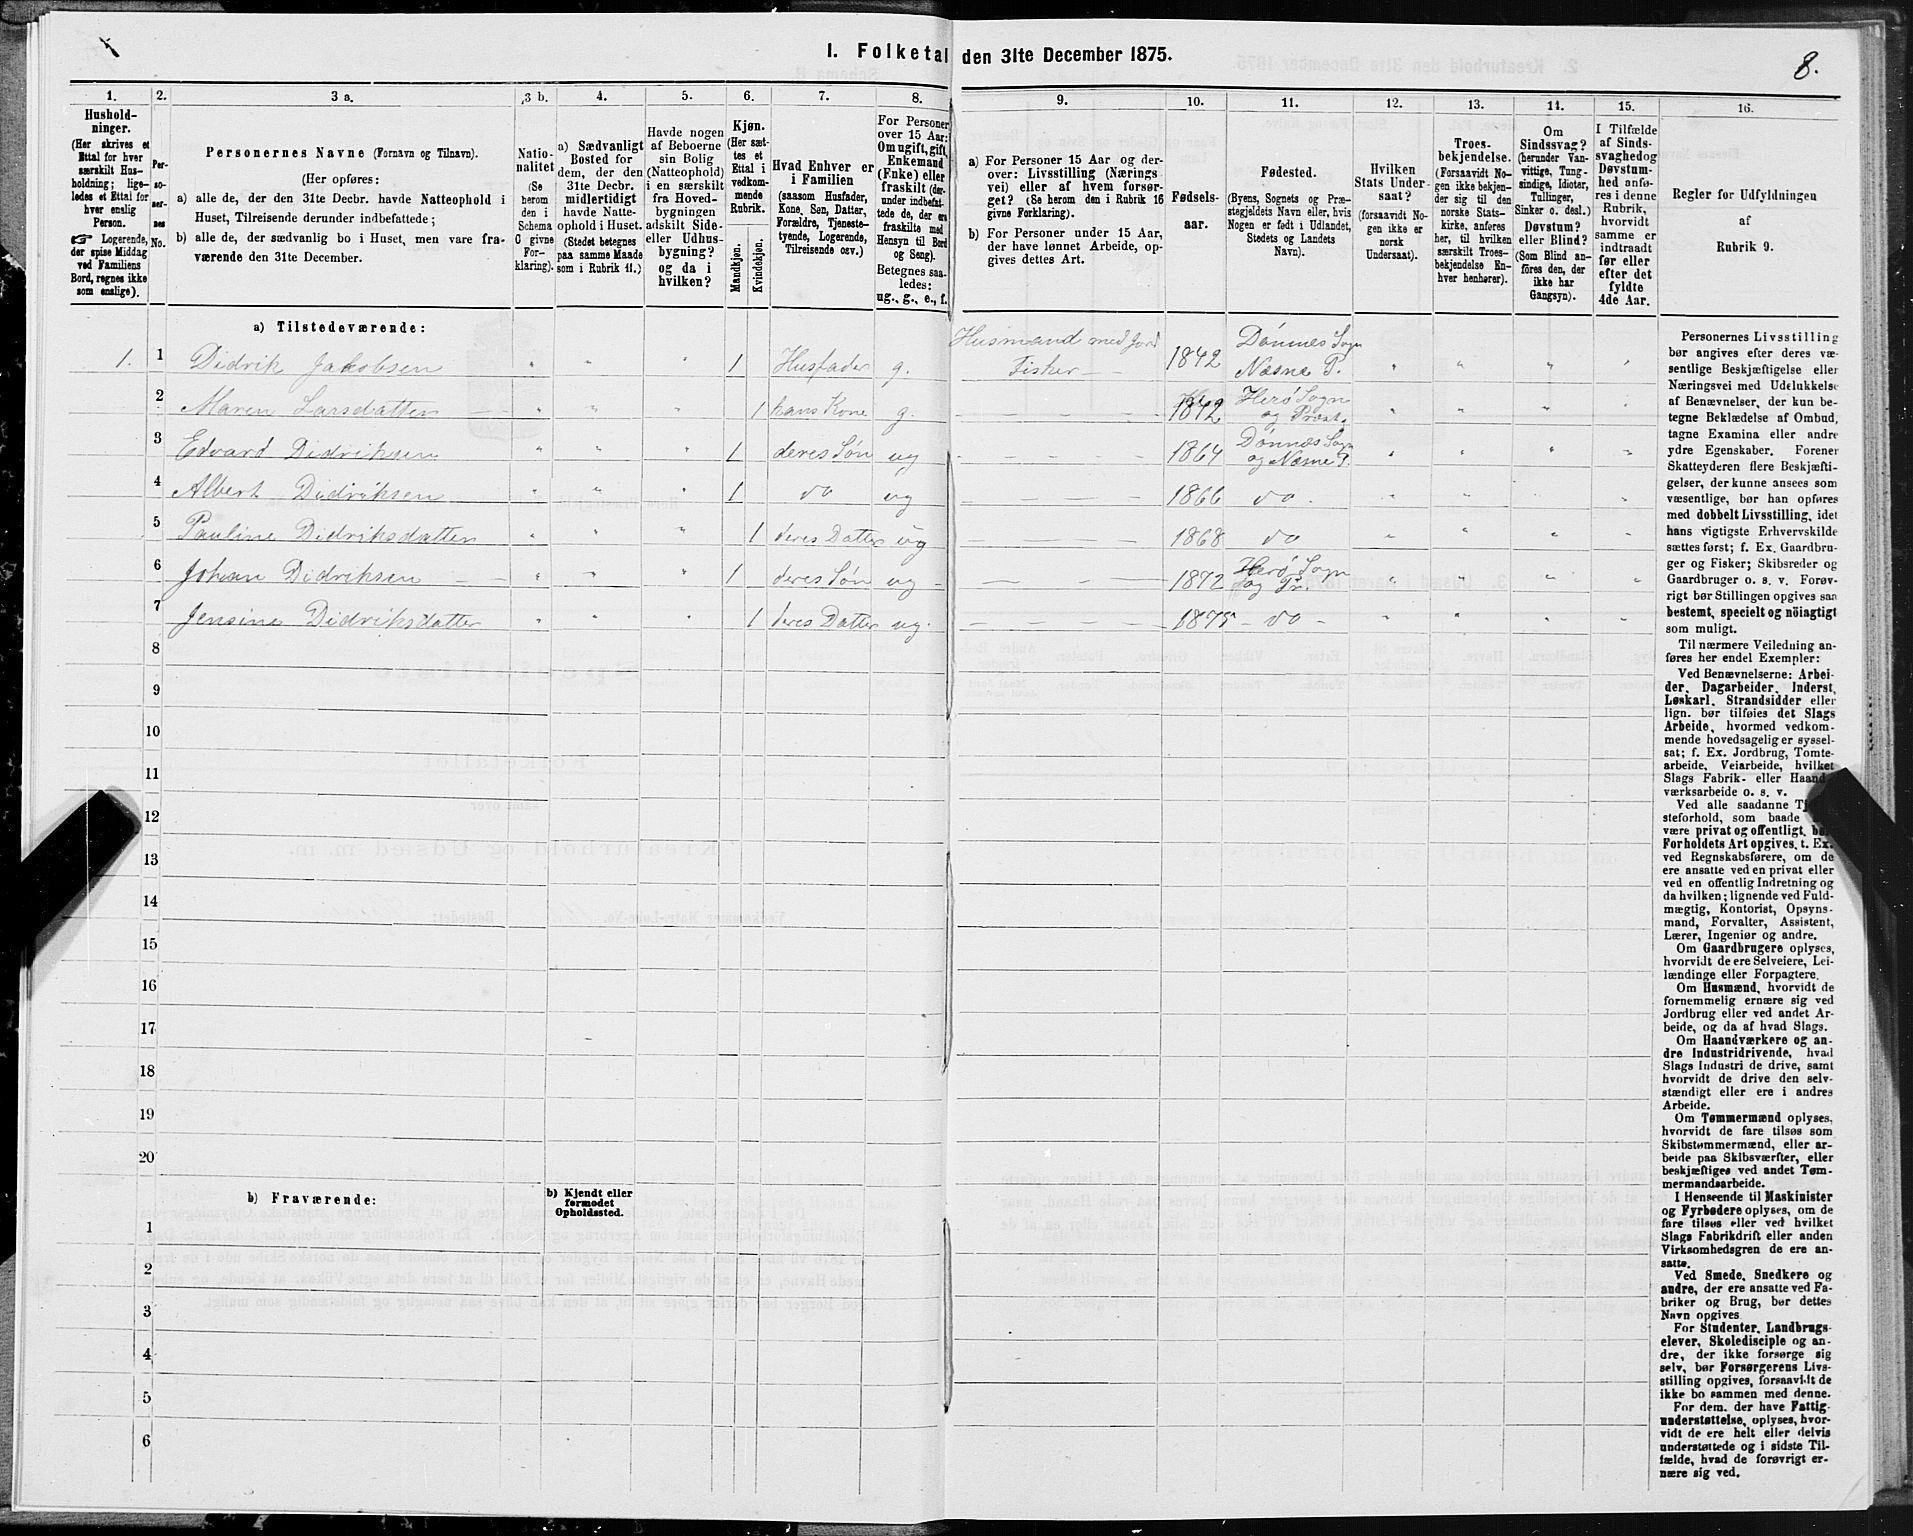 1. Folketal den 31te December 1875.
8.
1. 2. 3 a. 3 b. 4. 5. 6. 7. 8. 9. 10. 11. 12. 13. 14. 15. 16.
Hushold-
ninger.
(Her skrives et
Ettal for hver
særskilt Hus-
holdning; lige-
ledes et Ettal for
hver enslig
Person.
☞ Logerende,
der spise Middag
ved Familiens
Bord, regnes ikke
som enslige).
Per-
so-
ner-
nes
No.
Personernes Navne (Fornavn og Tilnavn).
(Her opføres:
a) alle de, der den 31te Decbr. havde Natteophold i
Huset, Tilreisende derunder indbefattede;
b) alle de, der sædvanlig bo i Huset, men vare fra-
værende den 31te December.
Natio-
nalitet
(Se
herom
den i
Schema
C givne
For-
klaring).
a) Sædvanligt
Bosted for
dem, der den
31te Decbr.
midlertidigt
havde Natte-
ophold i Huset.
(Stedet betegnes
paa samme Maade
som i Rubrik 11.)
Havde nogen
af Beboerne
sin Bolig
(Natteophold)
i en særskilt
fra Hoved-
bygningen
adskilt Side-
eller Udhus-
bygning?
og da i
hvilken?
Kjøn.
(Her sæt-
tes et
Ettal i
vedkom-
mende
Rubrik.
Mandkjøn.
Kvindekjøn.
Hvad Enhver er
i Familien
(saasom Husfader,
Kone, Søn, Datter,
Forældre, Tjeneste-
tyende, Logerende,
Tilreisende osv.)
For Personer
over 15 Aar:
Om ugift, gift,
Enkemand
(Enke) eller
fraskilt (der-
under indbefat-
tede de, der ere
fraskilte med
Hensyn til Bord
og Seng).
Betegnes saa-
ledes:
ug., g., e., f.
a) For Personer 15 Aar og der-
over: Livsstilling (Nærings
vei) eller af hvem forsør-
get? (Se herom den i Rubrik 16
givne Forklaring).
b) For Personer under 15 Aar,
der have lønnet Arbeide, op-
gives dettes Art.
Fødsels-
aar.
Fødested.
(Byens, Sognets og Præ-
stegjeldets Navn eller, hvis
Nogen er født i Udlandet,
Stedets og Landets
Navn).
Hvilken
Stats Under-
saat?
(forsaavidt No-
gen ikke er
norsk
Undersaat).
Troes-
bekjendelse.
(Forsaavidt No-
gen ikke bekjen-
der sig til den
norske Stats-
kirke, anføres
her, til hvilken
særskilt Troes-
bekjendelse En-
hver henhører).
Om
Sindssvag?
(herunder Van-
vittige, Tung-
sindige, Idioter,
Tullinger,
Sinker o. desl.)
Døvstum?
eller Blind?
(Som Blind an-
føres den, der
ikke har
Gangsyn).
I Tilfælde
af Sinds-
svaghed og
Døvstum-
hed anfø-
res i denne
Rubrik,
hvorvidt
samme er
indtraadt
før eller
efter det
fyldte
4de Aar.
Regler for Udfyldningen
af
Rubrik 9.
a) Tilstedeværende:
1. 1 Didrik Jakobsen " " " 1 Husfader g. Husmand med Jord Fisker — 1842 Dønnes Sogn Næsne P. " " " "
2 Maren Larsdatter " " " 1 hans Kone g. 1842 Herø Sogn og Præst. " " " "
3 Edvard Didriksen " " " 1 deres Søn ug 1864 Dønnæs Sogn og Næsne P. " " " "
4 Albert Didriksen " " " 1 do ug 1866 do. " " " "
5 Pauline Didriksdatter " " " 1 deres Datter ug 1868 do " " " "
6 Johan Didriksen " " " 1 deres Søn ug 1872 Herø Sogn og Pr. " " " "
7 Jensine Didriksdatter " " " 1 deres Datter ug. 1875 – do – " " " "
8
9
10
11
12
13
14
15
16
17
18
19
20
b) Fraværende:
b) Kjendt eller
formodet
Opholdssted.
1
2
3
4
5
6
Personernes Livsstilling
bør angives efter deres væ-
sentlige Beskjæftigelse eller
Næringsvei med Udelukkelse
af Benævnelser, der kun be-
tegne Beklædelse af Ombud,
tagne Examina eller andre
ydre Egenskaber. Forener
Skatteyderen flere Beskjæfti-
gelser, der kunne ansees som
væsentlige, bør han opføres
med dobbelt Livsstilling, idet
hans vigtigste Erhvervskilde
sættes først; f. Ex. Gaardbru-
ger og Fisker; Skibsreder og
Gaardbruger o. s. v. Forøv-
rigt bør Stillingen opgives saa
bestemt, specielt og nöiagtigt
som muligt.
Til nærmere Veiledning an-
føres her endel Exempler:
Ved Benævnelserne: Arbei-
der, Dagarbeider, Inderst,
Løskarl, Strandsidder eller
lign. bør tilføies det Slags
Arbeide, hvormed vedkom-
mende hovedsagelig er syssel-
sat; f. Ex. Jordbrug, Tomte-
arbeide, Veiarbeide, hvilket
Slags Fabrik- eller Haand-
værksarbeide o. s. v.
Ved alle saadanne
steforhold, som baade
være privat og offentligt, bør
Forholdets Art opgives, t. Ex.
ved Regnskabsførere, om de
ere ansatte ved en privat eller
ved en offentlig Indretning og
da hvilken; lignende ved Fuld-
mægtig, Kontorist, Opsyns-
mand, Forvalter, Assistent,
Lærer, Ingeniør og andre.
Om Gaardbrugere oplyses,
hvorvidt de ere Selveiere, Lei-
lændinge eller Forpagtere.
Om Husmænd, hvorvidt de
fornemmelig ernære sig ved
Jordbrug eller ved andet Ar-
beide, og da af hvad Slags.
Om Haandværkere og an-
dre Industridrivende, hvad
Slags Industri de drive, samt
hvorvidt de drive den selv-
stændigt eller ere i andres
Arbeide.
Om Tømmermænd oplyses,
hvorvidt de fare tilsøs som
Skibstømmermænd, eller ar-
beide paa Skibsværfter, eller
beskjæftiges ved andet Tøm-
mermandsarbeide.
I Henseende til Maskinister
og Fyrbødere oplyses, om de
fare tilsøs eller ved hvilket
Slags Fabrikdrift eller anden
Virksomhedsgren de ere an-
satte.
Ved Smede, Snedkere og
andre, der ere ansatte ved Fa-
briker og Brug, bør dettes
Navn opgives
For Studenter, Landbrugs-
elever, Skoledisciple og an-
dre, der ikke forsørge sig
selv, bør Forsørgerens Livs-
stilling opgives, forsaavidt de
ikke bo sammen med denne.
For dem, der have Fattig-
understøttelse, oplyses, hvor-
vidt de ere helt eller delvis
understøttede og i sidste Til-
fælde, hvad de forøvrigt er-
nære sig ved.